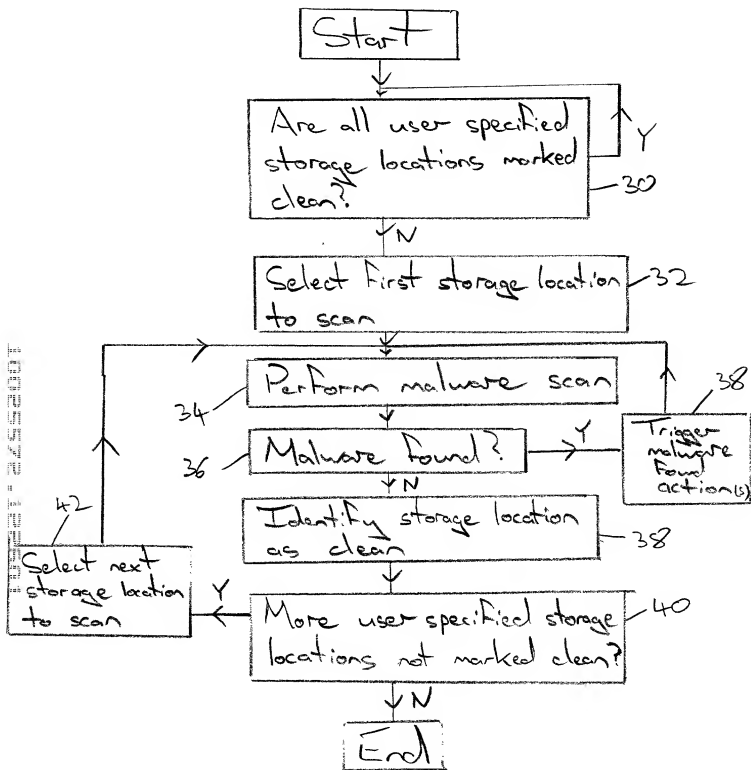 Start
Are all user specified
storage locations marked
clean?
Y
30
N
Select first storage location
to scan
32
Perform malware scan
34
Malware found?
36
Y
Trigger
malware
found
action(s)
38
N
Identify storage location
as clean
38
More user specified storage
locations not marked clean?
40
Y
Select next
storage location
to scan
42
N
End